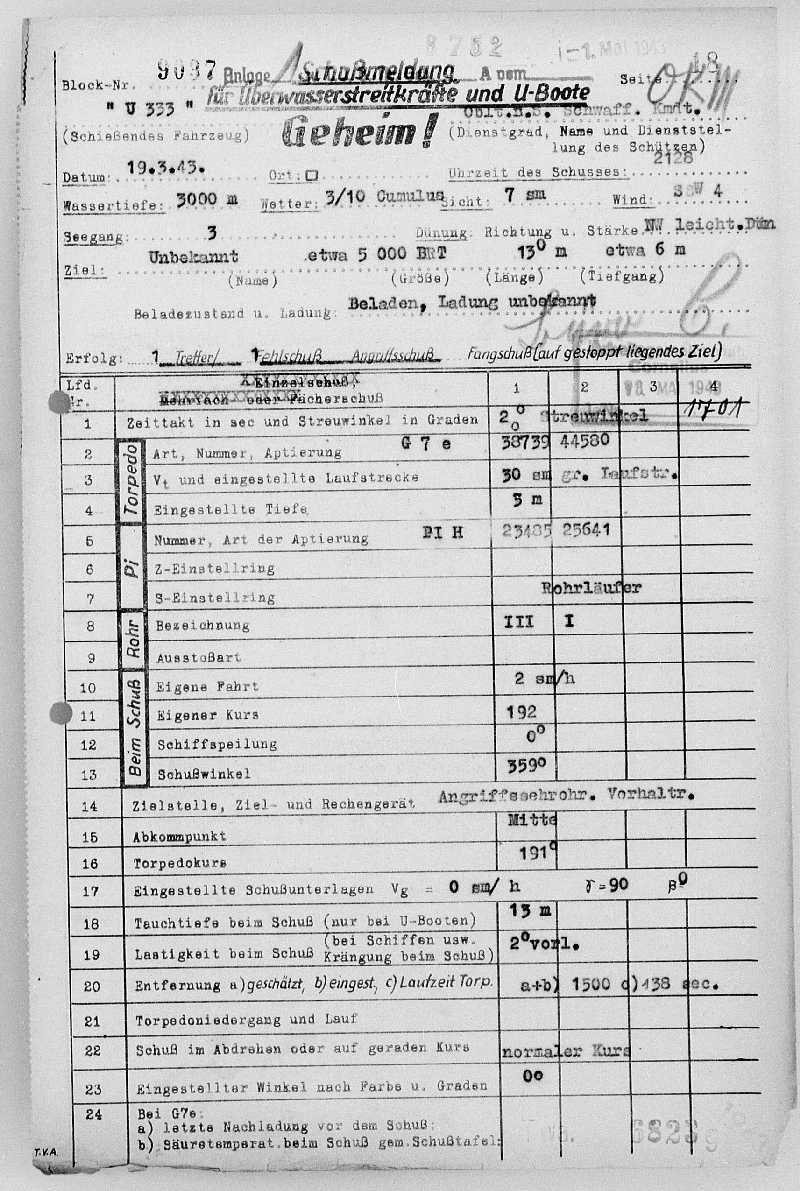 8752 1. Mai 1943
Block-Nr. 9087 Anlage 1 Schußmeldung A vom Seite 18
für Überwasserstreitkräfte und U-Boote
" U 333 " Oblt.z.S. Schwaff. Kmdt.
(Schießendes Fahrzeug) Geheim! (Dienstgrad, Name und Dienststel-
lung des Schützen)
Datum: 19.3.43. Ort: □ Uhrzeit des Schusses: 2128
Wassertiefe: 3000 m Wetter: 3/10 Cumulus Sicht: 7 sm Wind: SSW 4
Seegang: 3 Dünung: Richtung u. Stärke NW leicht.Dün
Ziel: Unbekannt etwa 5 000 BRT 130 m etwa 6 m
(Name) (Größe) (Länge) (Tiefgang)
Beladezustand u. Ladung: Beladen, Ladung unbekannt
Erfolg: 1 Treffer/ 1 Fehlschuß Angriffsschuß Fangschuß (auf gestoppt liegendes Ziel)
18. MAI 1943
Lfd. Nr. Einzelschuß, Mehrfach oder Fächerschuß 1 2 3 4
1701
1 Zeittakt in sec und Streuwinkel in Graden 2° Streuwinkel
Torpedo
2 Art, Nummer, Aptierung G 7 e 38739 44580
3 Vt und eingestellte Laufstrecke 30 sm gr. Laufstr.
4 Eingestellte Tiefe 3 m
Pi
5 Nummer, Art der Aptierung PI H 23485 25641
6 Z-Einstellring
7 S-Einstellring Rohrläufer
Rohr
8 Bezeichnung III I
9 Ausstoßart
Beim Schuß
10 Eigene Fahrt 2 sm/h
11 Eigener Kurs 192
12 Schiffspeilung 0°
13 Schußwinkel 359°
14 Zielstelle, Ziel- und Rechengerät Angriffssehrohr. Vorhaltr.
15 Abkommpunkt Mitte
16 Torpedokurs 191°
17 Eingestellte Schußunterlagen Vg = 0 sm/ h γ=90 β°
18 Tauchtiefe beim Schuß (nur bei U-Booten) 13 m
19 Lastigkeit beim Schuß (bei Schiffen usw. Krängung beim Schuß) 2°vorl.
20 Entfernung a) geschätzt, b) eingest, c) Laufzeit Torp. a+b) 1500 c)138 sec.
21 Torpedoniedergang und Lauf
22 Schuß im Abdrehen oder auf geraden Kurs normaler Kurs
23 Eingestellter Winkel nach Farbe u. Graden 0°
24 Bei G7e:
a) letzte Nachladung vor dem Schuß:
b) Säuretemperat. beim Schuß gem. Schußtafel:
T.V.A. 6823